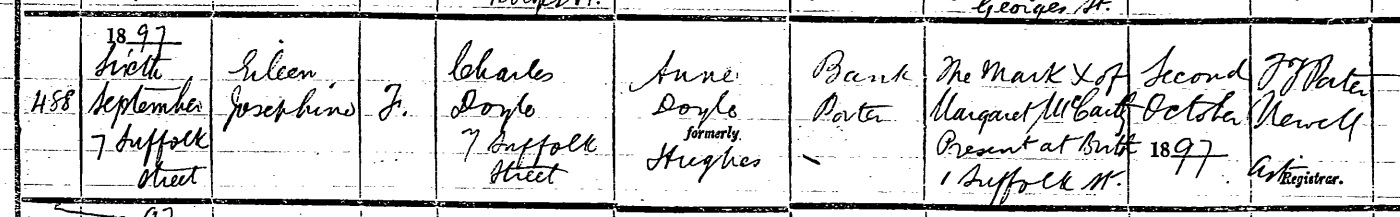 Georges St.
488
1897
Sixth
September
7 Suffolk
Street
Eileen
Josephine
F.
Charles
Doyle
7 Suffolk
Street
Anne
Doyle
formerly
Hughes
Bank
Porter
The Mark X of
Margaret
Present at Birth
1 Suffolk St.
Second
October
1897
Porter
Newell
Registrar.
97